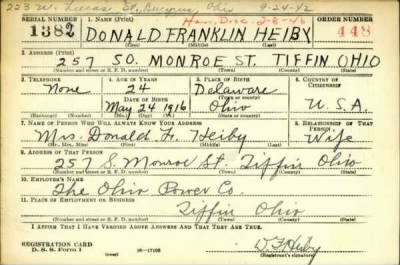 223 W. Lucas St., Bucyrus, Ohio 9-24-42
Hon. Disc. 2-8-46
SERIAL NUMBER 1. NAME (Print) ORDER NUMBER
1382 DONALD FRANKLIN HEIBY 448
(First) (Middle) (Last)
2. ADDRESS (Print)
257 SO. MONROE ST. TIFFIN OHIO
(Number and street or R. F. D. number) (Town) (County) (State)
3. TELEPHONE 4. AGE IN YEARS 5. PLACE OF BIRTH 6. COUNTRY OF CITIZENSHIP
None 24 Delaware
DATE OF BIRTH (Town or county)
May 24 1916 Ohio U.S.A.
(Exchange) (Number) (Mo.) (Day) (Yr.) (State or country)
7. NAME OF PERSON WHO WILL ALWAYS KNOW YOUR ADDRESS 8. RELATIONSHIP OF THAT PERSON
Mrs. Donald F. Heiby Wife
(Mr., Mrs., Miss) (First) (Middle) (Last)
9. ADDRESS OF THAT PERSON
257 S. Monroe St. Tiffin Ohio
(Number and street or R. F. D. number) (Town) (County) (State)
10. EMPLOYER'S NAME
The Ohio Power Co.
11. PLACE OF EMPLOYMENT OR BUSINESS
Tiffin Ohio
(Number and street or R. F. D. number) (Town) (County) (State)
I AFFIRM THAT I HAVE VERIFIED ABOVE ANSWERS AND THAT THEY ARE TRUE.
REGISTRATION CARD
D. S. S. Form 1 (over) 16-17105 D. F. Heiby
(Registrant's signature)